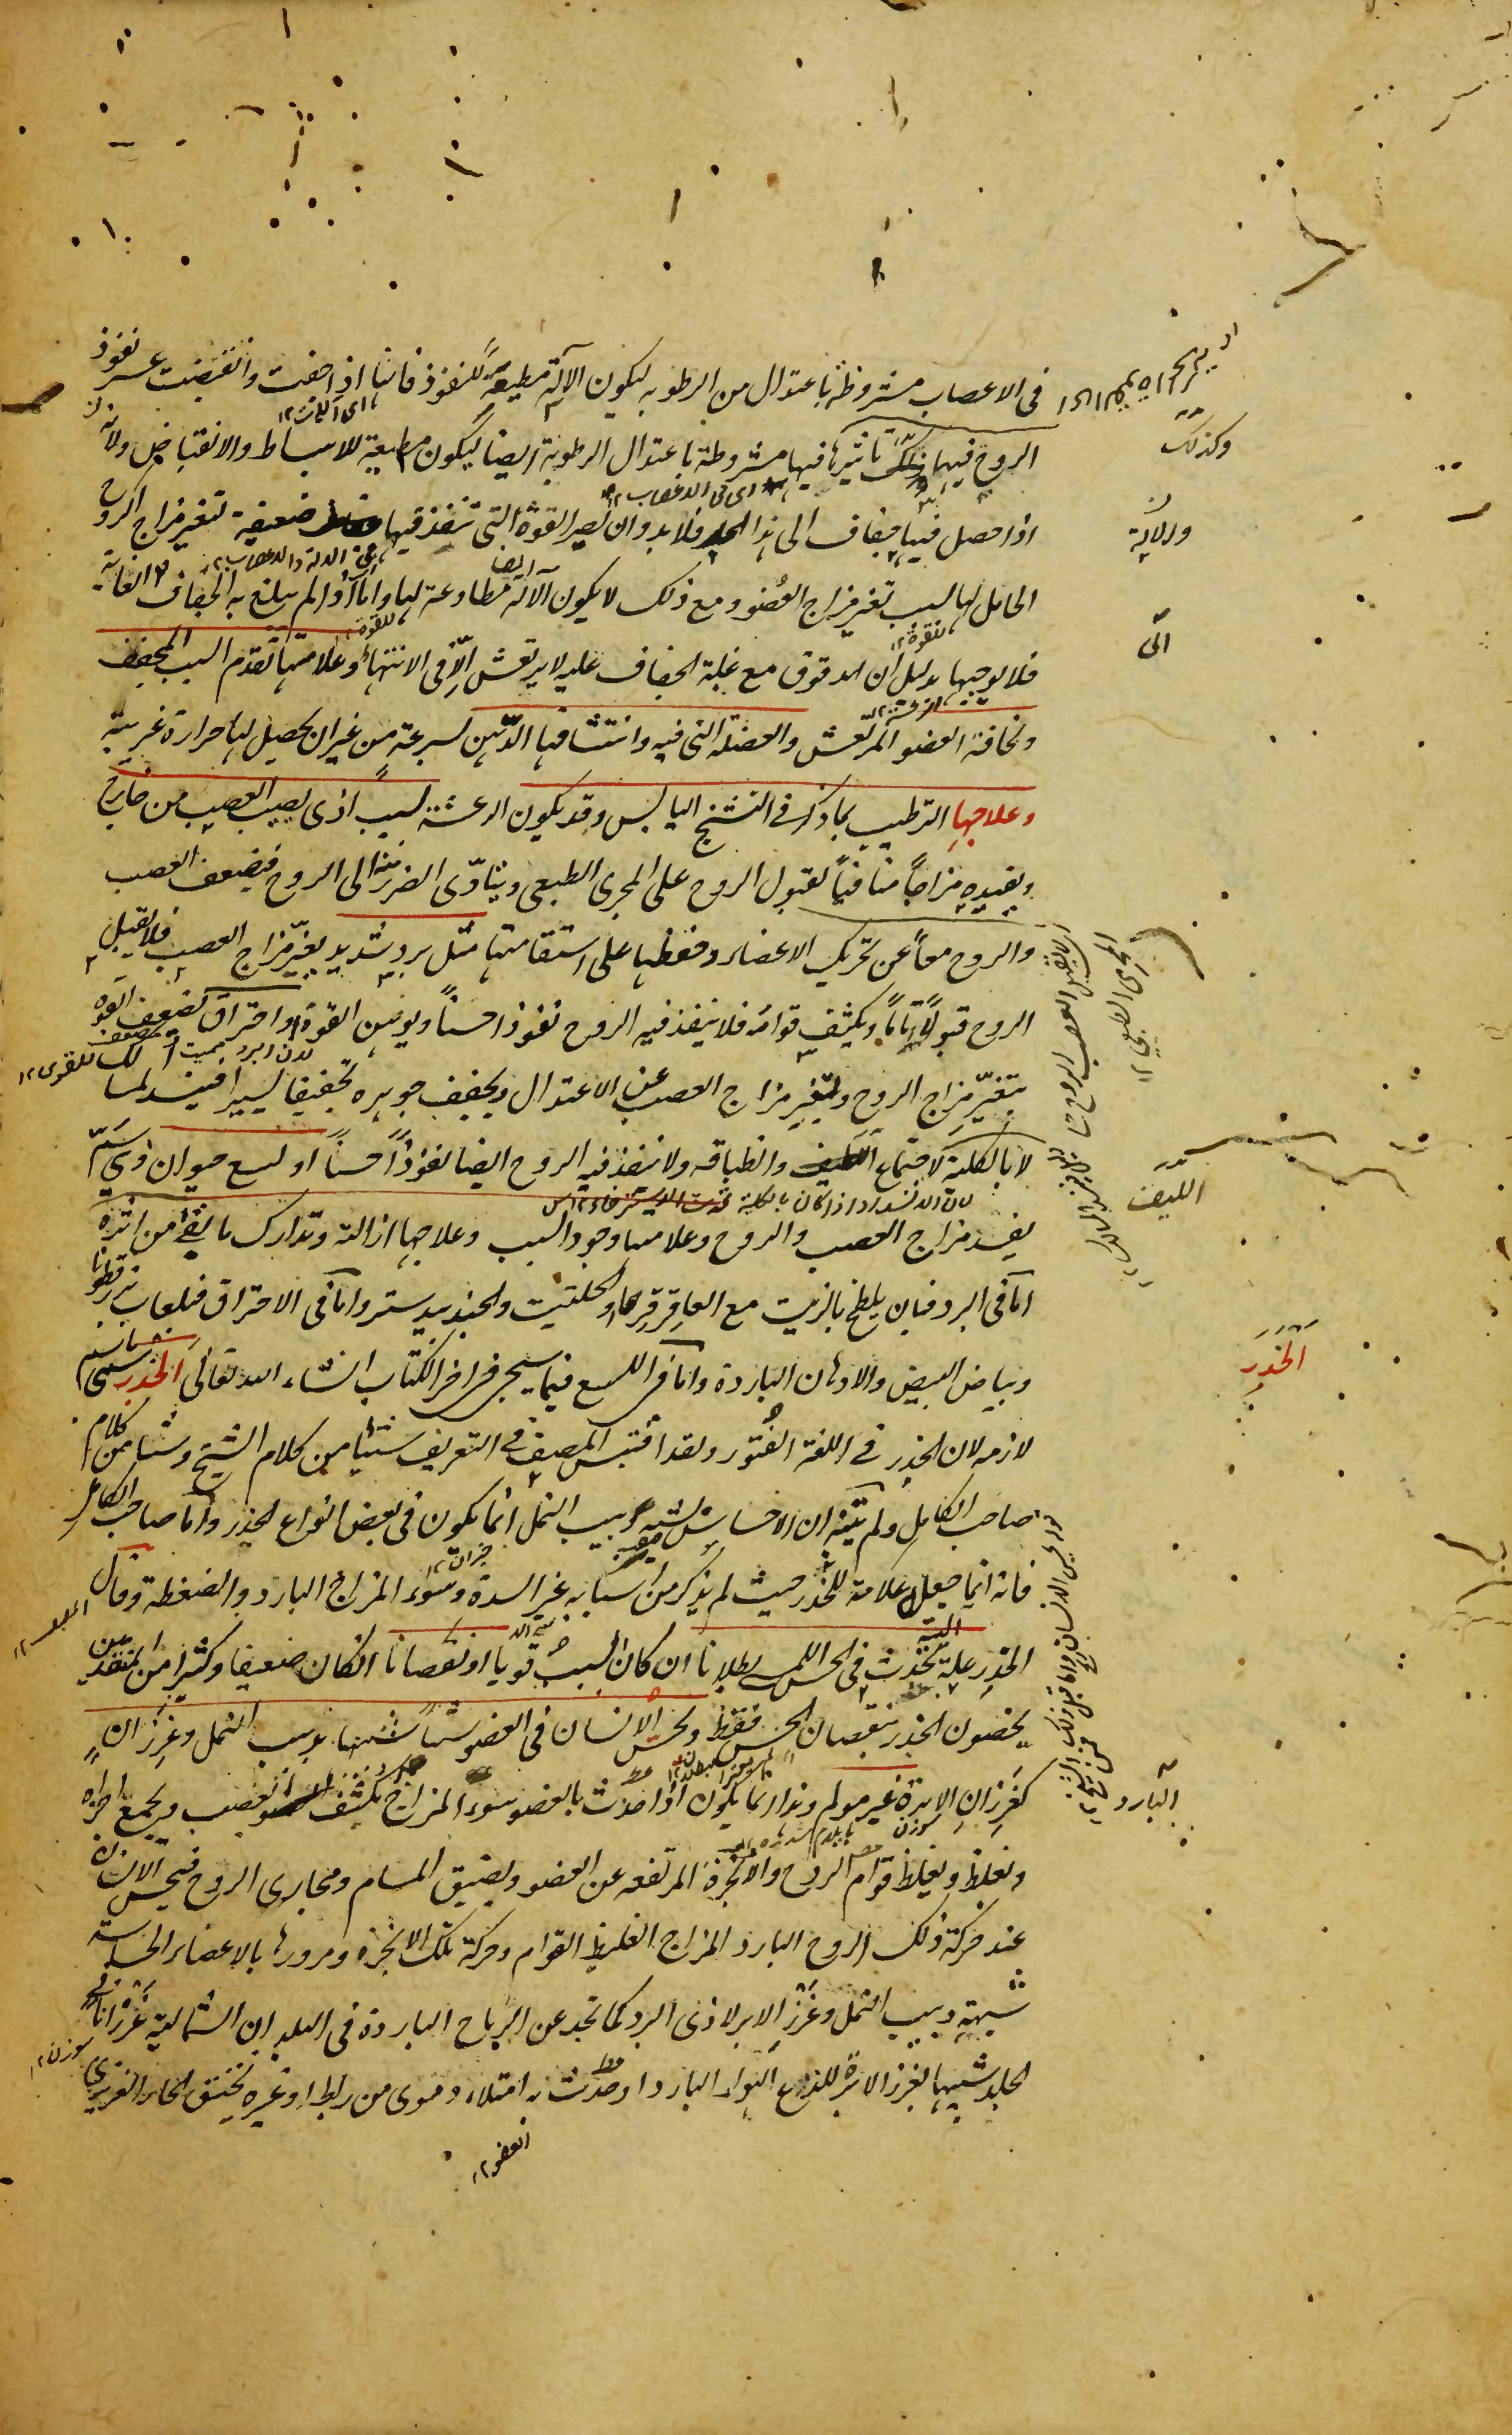 فى الاعصاب مشروطة باعتدال من الرطوبه ليكون الآلة مطيعة للنفوذ فانها اذا جفت وانقبضت عسر نفوذ
الروح فيها وكذلك تاثيرها فيها مشروطة باعتدال الرطوبة ايضا ليكون مطيعة للانبساط والانقباض ولانه
اذا حصل فيها جفاف الى هذا الحد فلابد وان تصير القوة التى تنفذ فيها ضعيفة لتغير مزاج الروح
الحامل لها لسبب تغير مزاج العضو ومع ذلك لا يكون الآلة مطاوعة لها واما اذا لم يبلغ به الجفاف الغاية
فلا يوجبها بدليل ان المدقوق مع غلبة الجفاف عليه لا يرتعش الّا فى الانتهاء وعلامتها تقدم السبب المجفف
ونحافة العضو المرتعش والعضلة التى فيه وانتشافها الدّهن بسرعة من غير ان يحصل لها حرارة غريبة
وعلاجها الترطيب بما ذكر فى التشنج اليابس وقد يكون الرعشة لسبب اذى يصيب العصب من خارج
ويفيده مزاجاً منافياً لقبول الروح على المجرى الطبعى ويتادّى الضرر منه الى الروح فيضعف العصب
والروح معاً عن تحريك الاعضاء وحفظها على استقامتها مثل برد شديد يغيّر مزاج العصب فلا يقبل
الروح قبولاً تاماً ويكثف قوامه فلا ينفذ فيه الروح نفوذا حسناً ويوهن القوة او احتراق لضعف القوه
بتغيّر مزاج الروح ولتغير مزاج العصب عن الاعتدال ويجفف جوهره تجفيفا يسيرا
لا بالكلية لاجتماع الليف وانطباقه ولا ينفذ فيه الروح ايضا نفوذاً حسناً او لسع حيوان ذى سمّ
يفسد مزاج العصب والروح وعلامتها وجود السبب وعلاجها ازالته وتدارك ما بقى من اثره
اما فى البرد فبان يلطخ بالزيت مع العاقرقرحا والحلتيت والجندبيدستر واما فى الاحتراق فبلعاب بزرقطونا
وبياض البيض والادهان الباردة واما فى اللسع فبما سيجئ فى اخر الكتاب انشاء الله تعالى الخدر سمى باسم
لازمه لان الخدر فى اللغة الفُتور ولقد اقتبس المصنف فى التعريف شيئا من كلام الشيخ وشيئا من كلام
صاحب الكامل ولم يتنبه ان الاحساس بشبه دبيب النمل انما يكون فى بعض انواع الخدر واما صاحب الكامل
فانه انما جعله علامة للخدر حيث لم يذكر من اسبابه غير السدة وسوء المزاج البارد والضغطة وقال
الخدر علة تحدث فى الحس اللمسى بطلانا ان كان السبب قويا او نقصانا ان كان ضعيفا وكثير من المتقدمين
يخصون الخدر بنقصان الحس فقط ويحس الانسان فى العضو شيئاً شبيها بدبيب النمل وغرزان
كغرزان الابرة غير مولم وهذا ربما يكون اذا حدث بالعضو سوء المزاج يكثف العصب ويجمع اجزاه
ويغلظ ويغلظ قوام الروح والابخرة المرتفعه عن العضو ويضيق المسام ومجارى الروح فيحس الانسان
عند حركة ذلك الروح البارد المزاج الغليظ القوام وحركة تلك الابخره ومرورها بالاعضاء الحساسة
شبيهة دبيب النمل وغرز الابر لاذى البرد كما تجد عن الرياح الباردة فى البلدان الشمالية غرزانا فى
الجلد شبيها بغرز الابرة للذع الهواء البارد او حدث به امتلاء دموى من رباط او غيره يختنق الحار الغريزى
وكذلك
ولانه
الى
الليف
الخدر
البارد
العضو ١٢